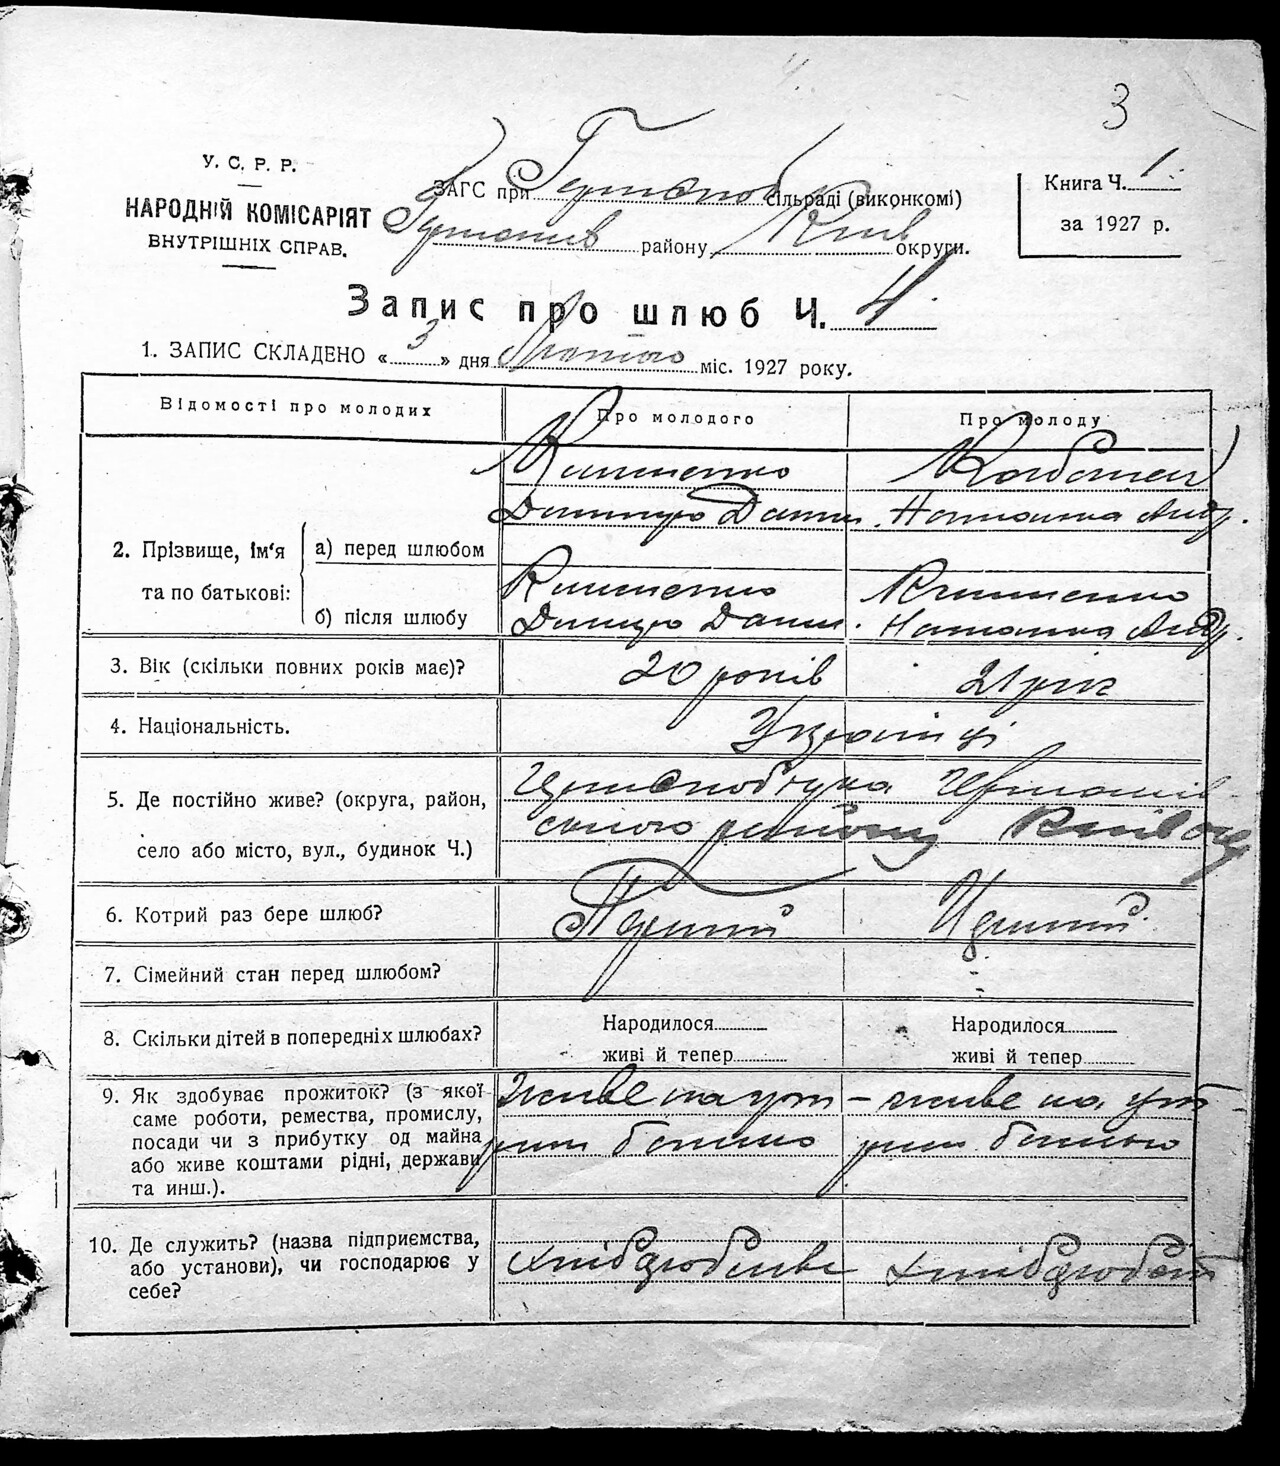 3
У. С. Р. Р.
НАРОДНІЙ КОМІСАРІЯТ
ВНУТРІШНІХ СПРАВ.
ЗАГС при сільраді (виконкомі)
району Київ округи.
Книга Ч. 1
за 1927 р.
Запис про шлюб Ч. 4
1. ЗАПИС СКЛАДЕНО « 3 » дня Лютого міс. 1927 року.
Відомості про молодих
Про молодого
Про молоду
2. Прізвище, ім'я
та по батькові:
а) перед шлюбом
б) після шлюбу
Дмитро Дани.
Дмитро Дани.
3. Вік (скільки повних років має)?
20 років
21 рік
4. Національність.
Українці
5. Де постійно живе? (округа, район,
село або місто, вул., будинок Ч.)
ського району
6. Котрий раз бере шлюб?
Перший
Перший
7. Сімейний стан перед шлюбом?
8. Скільки дітей в попередніх шлюбах?
Народилося
живі й тепер
Народилося
живі й тепер
9. Як здобуває прожиток? (з якої
саме роботи, ремества, промислу,
посади чи з прибутку од майна
або живе коштами рідні, держави
та инш.).
живе на ут-
рим батько
живе на ут-
рим батько
10. Де служить? (назва підприємства,
або установи), чи господарює у
себе?
хліборобство
хлібороб